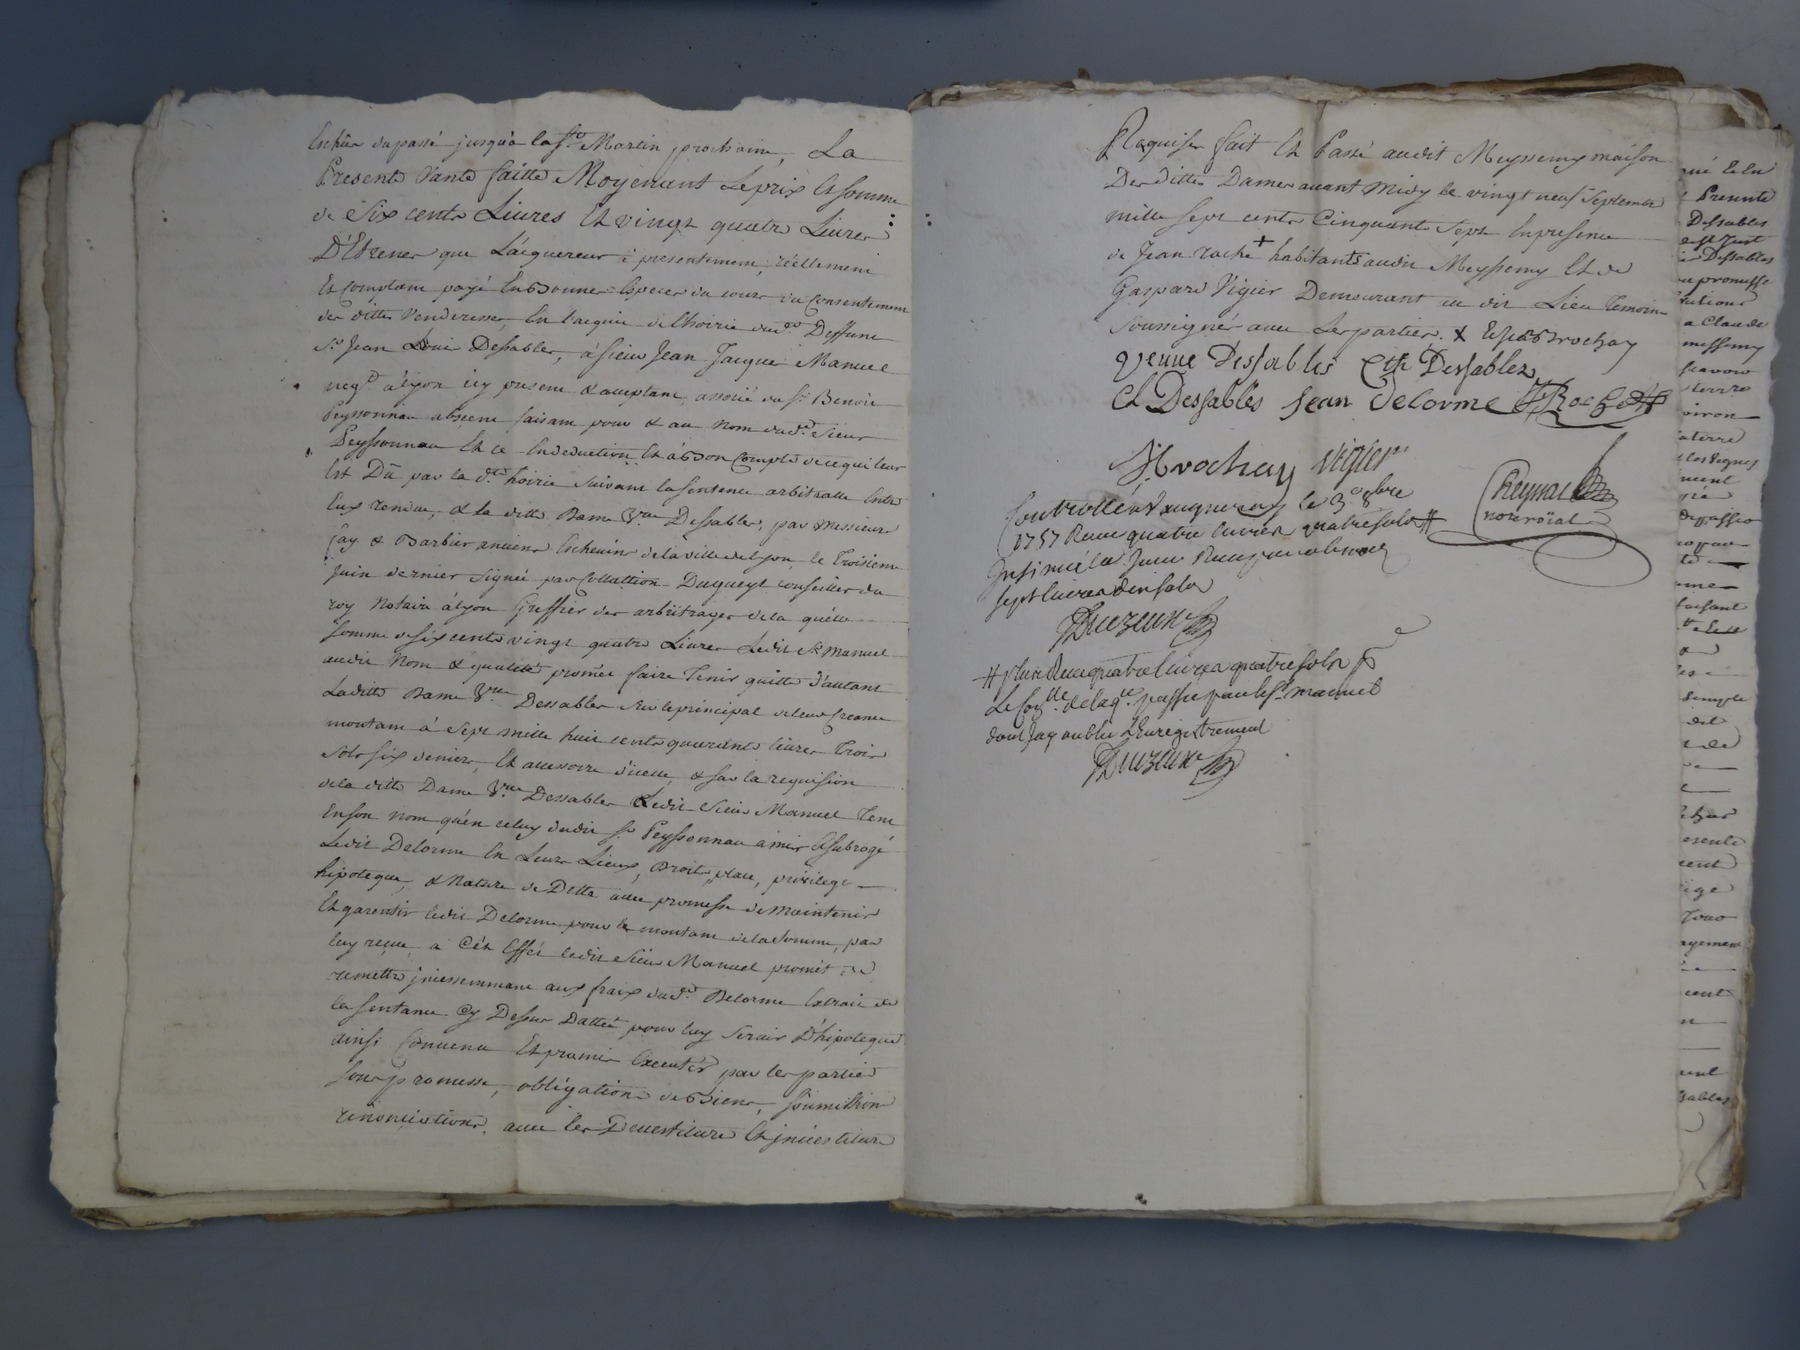 Echûs du passé jusqu'à la st. Martin prochaine, La
Presente Vante faitte Moyenant Le prix Et somme
de Six cents Livres Et vingt quatre Livres
D'Etrenes que L'aiquereur à presentement, réellement
Et Comptant payé En bonnes Especes du cours du Consentement
des dittes Venderesses, En l'acquit de l'hoirie dud. Deffunt
sr. Jean Loüis Dessables, à sieur Jean Jacque Manuel
neg.t à Lyon icy present & acceptant, associé du sr. Benoit
Peyssonnau absent faisant pour & au nom dud. Sieur
Peyssonnau Et ce En deduction Et à bon Compte de ce qui leur
Est Dû par la d.te hoirie suivant la sentence arbitralle Entre
Eux rendue, & la ditte Dame Vve. Dessables, par Messieurs
Fay & Barbier anciens Echevins de la ville de Lyon le Troisieme
Juin dernier signée par Collattion Dugueyt conseiller du
roy Notaire à Lyon Greffier des arbitrages de la quelle
somme de six cents vingt quatre Livres Ledit Sr. Manuel
audit Nom & qualité promet faire Tenir quitte d'autant
Laditte Dame Vve. Dessables sur le principal de leur Creance
montant à Sept mille huit cents quarente livres Trois
sols six deniers, Et accessoire d'icelle, & sur la requision
de la ditte Dame Vve. Dessables Ledit Sieur Manuel Tent
En son nom qu'en celuy dudit sr. Peyssonnau a mis & subrogé
Ledit Delorme En Leurs Lieux, Droits, place, privilege
hipoteque, & Nature de Dette avec promesse de Maintenir
Et garentir ledit Delorme pour le montant de la Somme, par
luy reçue, a Cét Effet ledit Sieur Manuel promet de
remettre jncessemment aux fraix dud. Delorme Extrait de
la sentance cy Dessus Dattée pour luy servir D'hipoteque
ainsi Convenu Et promis Executer par les parties
sous promesse, obligations de biens, soumissions
renonciations, avec les Devestiture Et jnvestiture
Requises fait Et Passé audit Meyssemy maison
Des dittes Dames avant Midy le vingt neuf Septembre
mille sept cents Cinquante Sept En presence
de Jean roche + habitants audit Meyssemy Et de
Gaspard Vigier Demeurant au dit Lieu Temoins
soussignés avec Les parties. X Et brochay
veuve Dessables Cth Dessables
Cl Dessables Jean Delorme JRoche
J. Brochay Vigier
Cheynas
not. roïal
Controllé à Vaugneray le 3e 8bre
1757 Receu quatre Livres quatre sols #
Insinué led. Jour Receu
sept livres dix sols
Duzeux
# plus Receu quatre livres quatre sols p.
Le Con.lle de la q.ce passée par le Sr. manuel
dont Jay oublié L'Enregistrement
Duzeux
Presente
Dessables
Dessables
promesse
a Claude
messemy
terre
viron
la terre
faisant
simple
esente